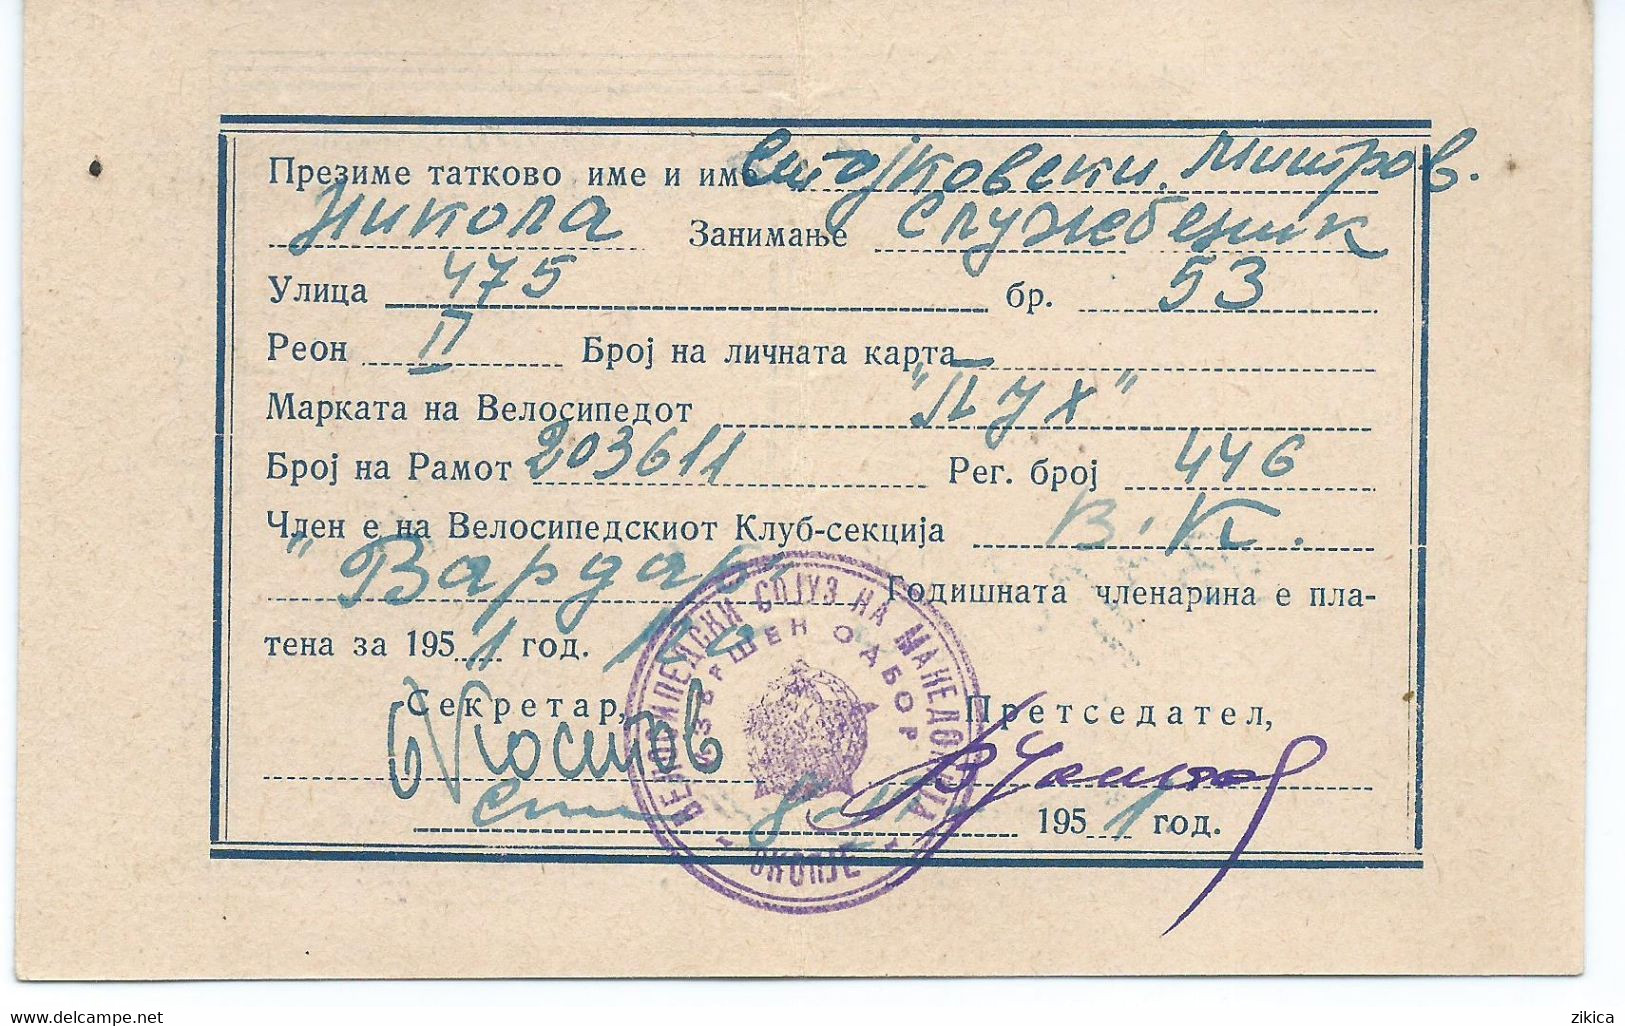 Презиме татково име и име Стојковски. Митров.
Никола Занимање Службеник
Улица 475 бр. 53
Реон II Број на личната карта —
Марката на Велосипедот "Пух"
Број на Рамот 203611 Рег. број 446
Член е на Велосипедскиот Клуб-секција В. К.
"Вардар" Годишната членарина е пла-
тена за 1951 год.
Секретар, Претседател,
1951 год.
ВЕЛОСИПЕДСКИ СОЈУЗ НА МАКЕДОНИЈА
ИЗВРШЕН ОДБОР
СКОПЈЕ
www.delcampe.net
zikica